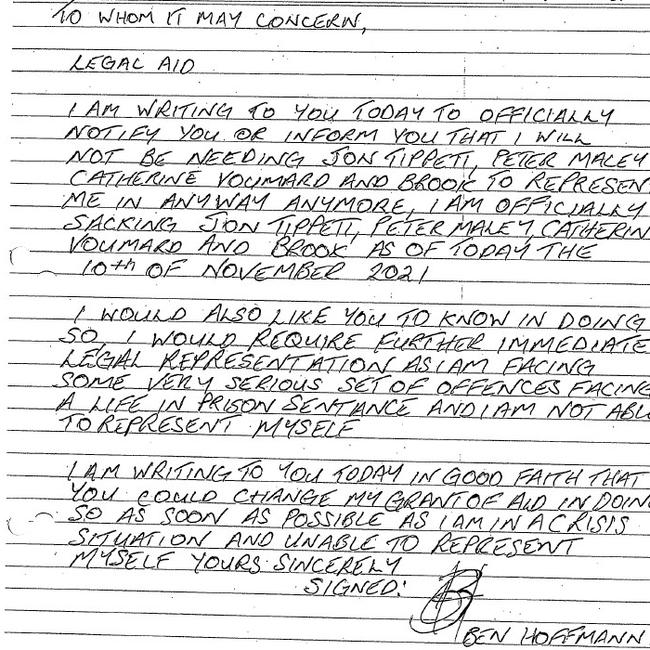 TO WHOM IT MAY CONCERN,
LEGAL AID
I AM WRITING TO YOU TODAY TO OFFICIALLY
NOTIFY YOU OR INFORM YOU THAT I WILL
NOT BE NEEDING JON TIPPETT, PETER MALEY
CATHERINE VOUMARD AND BROOK TO REPRESEN
ME IN ANYWAY ANYMORE, I AM OFFICIALLY
SACKING JON TIPPETT, PETER MALEY, CATHERIN
VOUMARD AND BROOK AS OF TODAY THE
10th OF NOVEMBER 2021
I WOULD ALSO LIKE YOU TO KNOW IN DOING
SO, I WOULD REQUIRE FURTHER IMMEDIATE
LEGAL REPRESENTATION AS I AM FACING
SOME VERY SERIOUS SET OF OFFENCES FACING
A LIFE IN PRISON SENTANCE AND I AM NOT ABL
TO REPRESENT MYSELF
I AM WRITING TO YOU TODAY IN GOOD FAITH THAT
YOU COULD CHANGE MY GRANT OF AID IN DOIN
SO AS SOON AS POSSIBLE AS I AM IN A CRISIS
SITUATION AND UNABLE TO REPRESENT
MYSELF YOURS SINCERELY
SIGNED:
BEN HOFFMANN